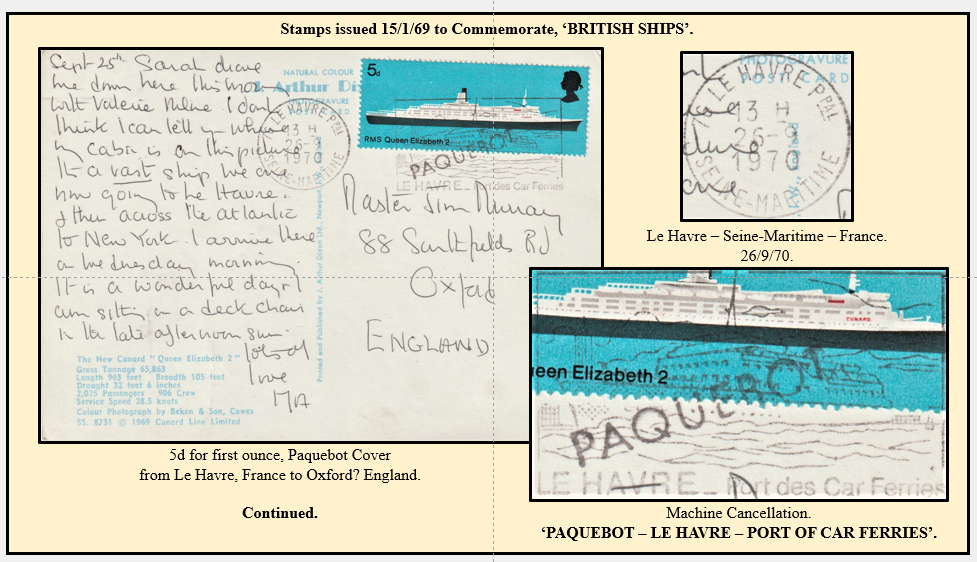 Stamps issued 15/1/69 to Commemorate, ‘BRITISH SHIPS’.
Sept 25th Sarah drove
me down here this
with Valerie Milne I don't
think I can tell you where
my cabin is on this picture
It's a vast ship we are
now going to Le Havre.
& then across the atlantic
to New York. I arrive there
on Wednesday morning.
It is a wonderful day & I
am sitting in a deck chair
in the late afternoon sun.
lots of
love
MA
The New Cunard "Queen Elizabeth 2"
Gross Tonnage 65,863
Length 963 feet Breadth 105 feet
Draught 32 feet 6 inches
2,025 Passengers 906 Crew
Service Speed 28.5 knots
Colour Photograph by Beken & Son, Cowes
SS. 8231 © 1969 Cunard Line Limited
Printed and Published by J. Arthur Dixon Ltd., Newport
NATURAL COLOUR
Arthur Di
PHOTOGRAVURE
POST CARD
LE HAVRE PPAL
13 H
26-9
1970
SEINE-MARITIME
5d
RMS Queen Elizabeth 2
PAQUEBOT
LE HAVRE _ Port des Car Ferries
Master Jim Murray
88 Southfields Rd
Oxford
ENGLAND
PHOTOGRAVURE
POST CARD
LE HAVRE PPAL
13 H
26-9
1970
SEINE-MARITIME
Le Havre – Seine-Maritime – France.
26/9/70.
CUNARD
ueen Elizabeth 2
PAQUEBOT
LE HAVRE _ Port des Car Ferries
5d for first ounce, Paquebot Cover
from Le Havre, France to Oxford? England.
Continued.
Machine Cancellation.
‘PAQUEBOT – LE HAVRE – PORT OF CAR FERRIES’.